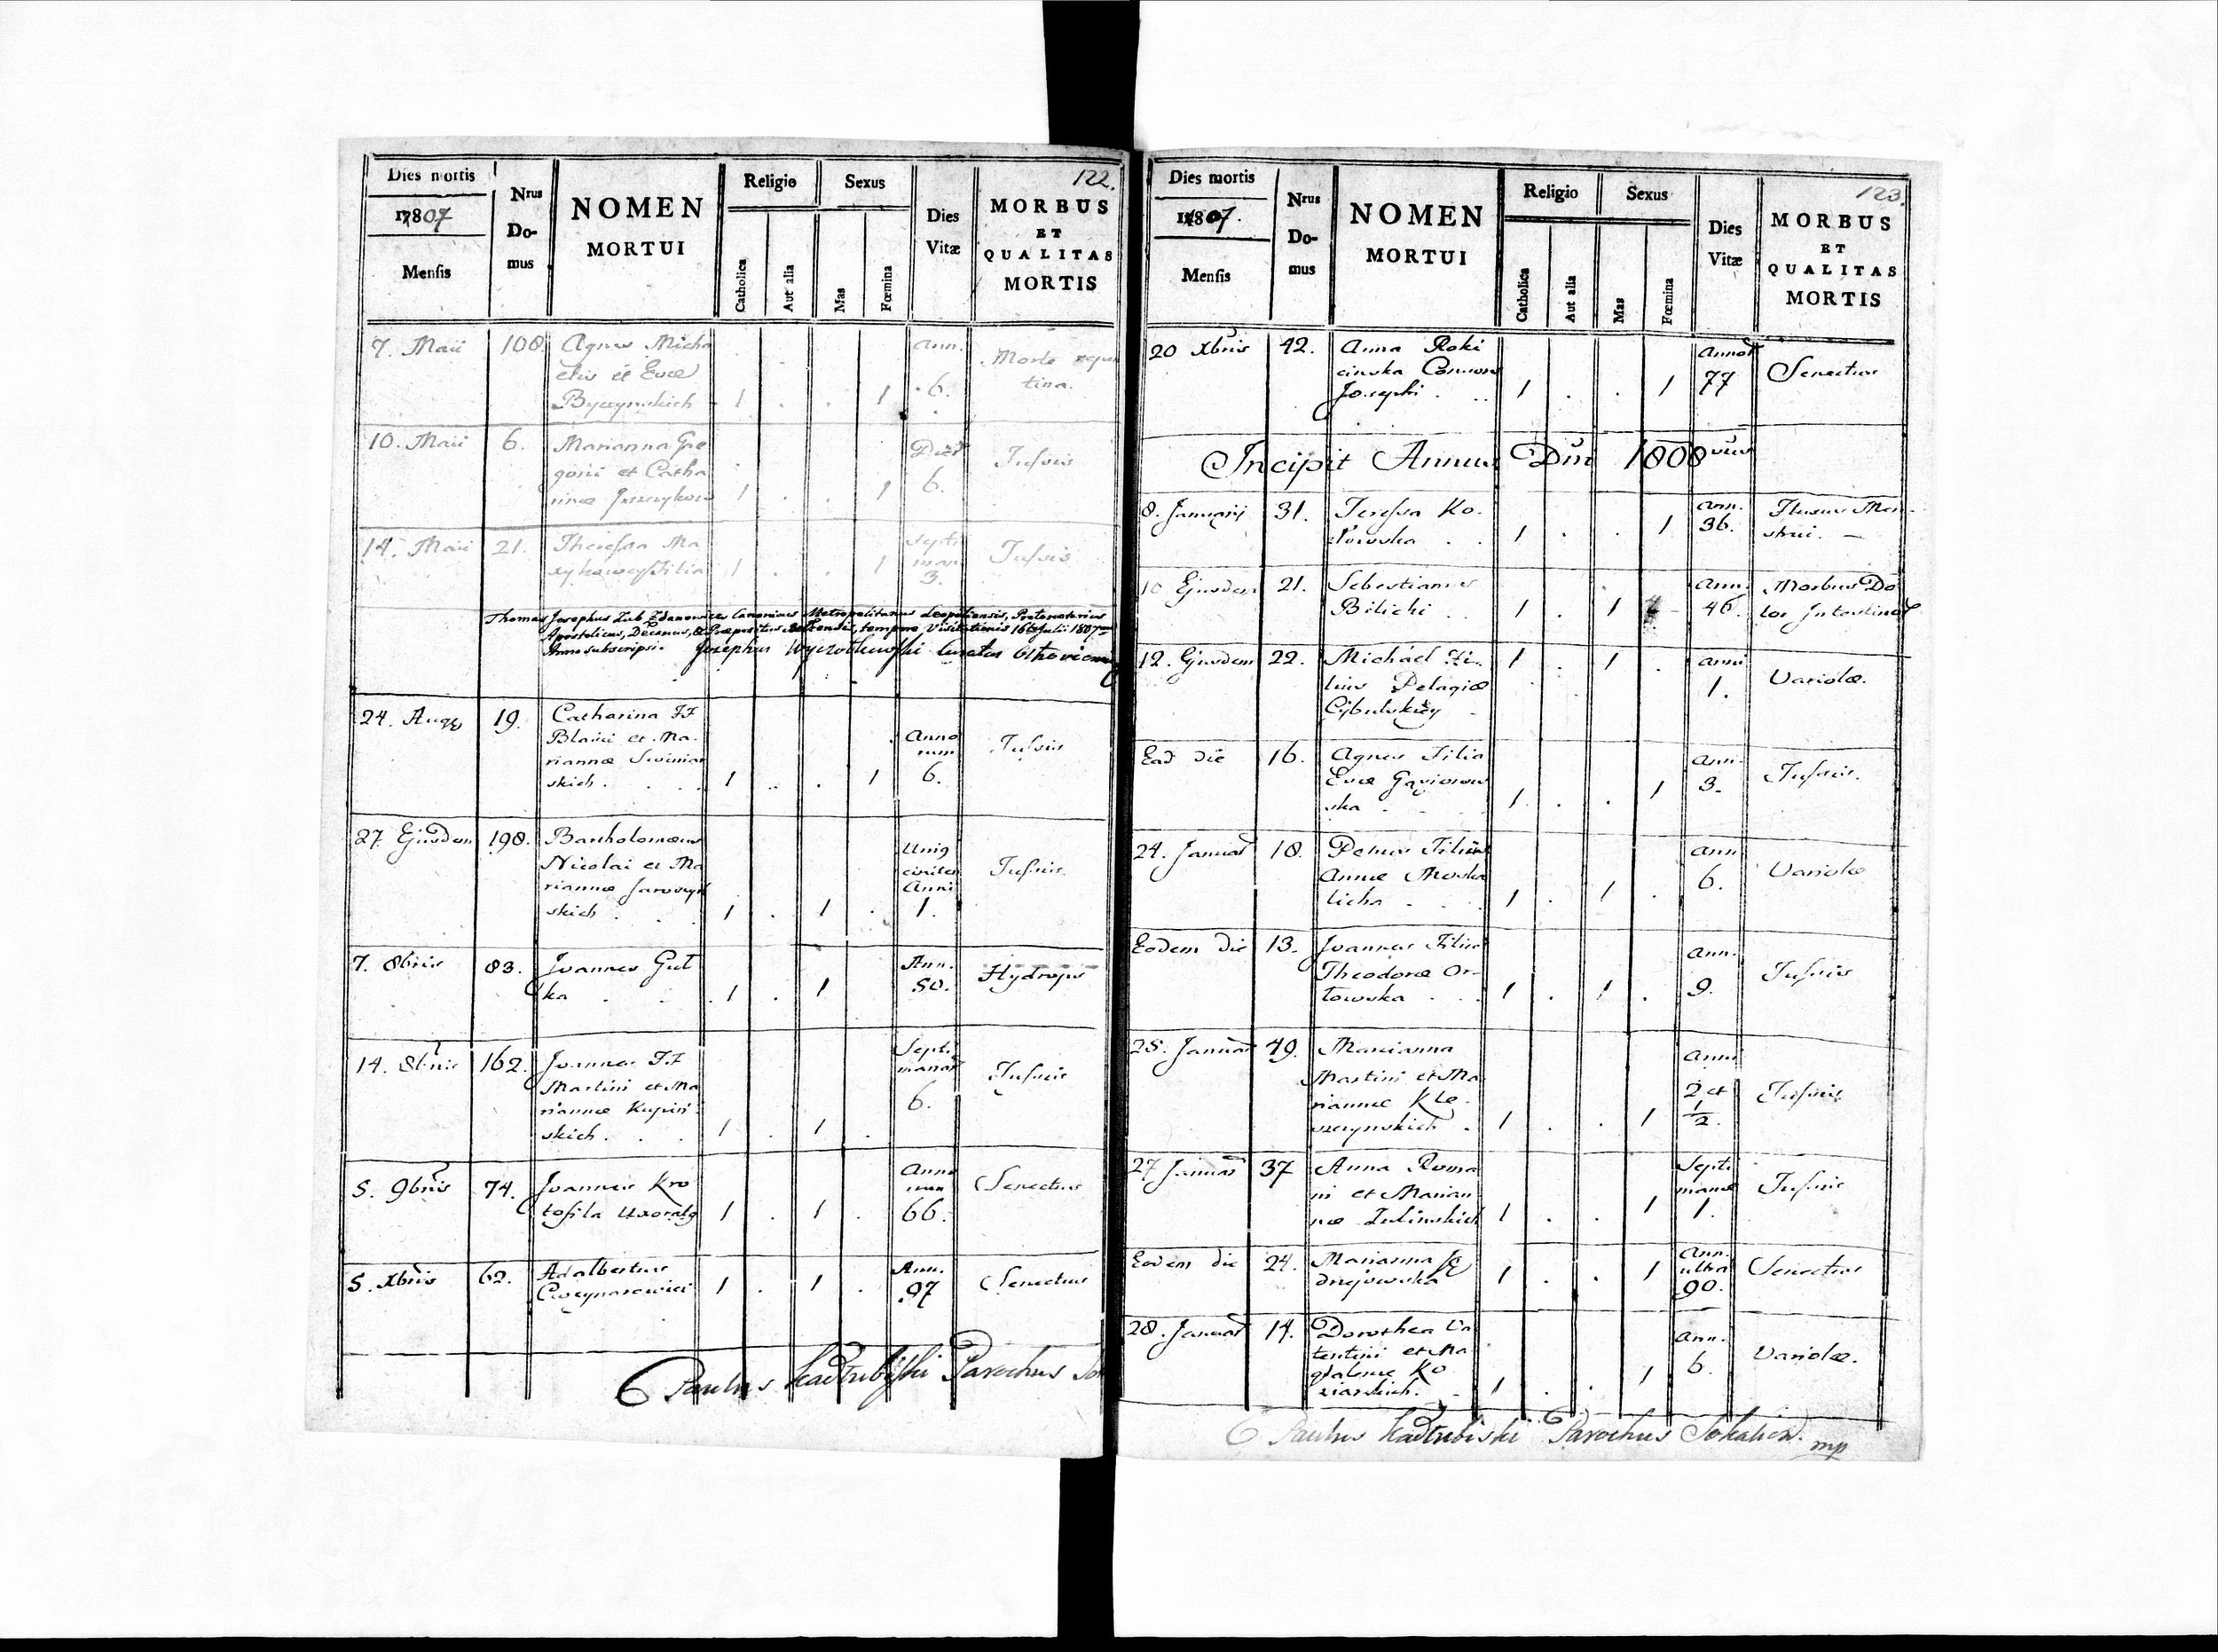 Dies mortis
17807
Mensis
Nrus
Do-
mus
NOMEN
MORTUI
Religio
Catholica
Aut alia
Sexus
Mas
Fœmina
Dies
Vitæ
122.
MORBUS
ET
QUALITAS
MORTIS
7. Maii 108. Agnes Micha
elis et Evæ
Byczynskich 1 . . 1 Ann. 6. Morte repen
tina.
10. Maii 6. Marianna Gre
gorii et Catha
rinæ 1 . . 1 Dier 6. Tussis
14. Maii 21. Theressa Ma
Filia 1 . . 1 Septi
man 3. Tussis
Thomas Josephus Zdanowicz Canonicus Metropolitanus Leopoliensis, Protonotarius
Apostolicus, Decanus, & Præpositus tempore Visitationis 16ta Julii 1807mo
Anno subscripsi. Josephus Curatus
24. Augs 19. Catharina FF
Blasii et Ma-
riannæ Swiniar
skich . 1 . . 1 Anno
rum 6. Tussis
27 Ejusdem 198. Bartholomæus
Nicolai et Ma
riannæ
skich . 1 . 1 . Anni
1. Tussis
7. 8bris 83. Joannes Gut
ka . 1 . 1 Ann.
50. Hydrops
14. 8bris 162. Joannes FF
Martini et Ma
riannæ Kupiń
skich . 1 . 1 . Septi
manar
6. Tussis
5. 9bris 74. Joannes Kro
tofila 1 . 1 . Anno
rum
66. Senectus
5. Xbris 62. Adalbertus
1 . 1 . Ann.
97 Senectus
Paulus Kadłubiski Parochus
Dies mortis
17807.
Mensis
Nrus
Do-
mus
NOMEN
MORTUI
Religio
Catholica
Aut alia
Sexus
Mas
Fœmina
Dies
Vitæ
123.
MORBUS
ET
QUALITAS
MORTIS
20 Xbris 42. Anna Roki
cinska Consors
Josephi . 1 . . 1 Annor
77 Senectus
Incipit Annus Dni 1808vus
8. Januarij 31. Teressa Ko-
złowska . 1 . . 1 Ann.
36. Fluxus Men-
strui. —
10 Ejusdem 21. Sebestianus
Bilichi . 1 . 1 Ann.
46. Morbus Do
lor Intestinor
12. Ejusdem 22. Michael Fi-
lius Pelagiæ
Cybulskiey 1 . 1 . Anni
1. Variolæ.
Ead die 16. Agnes Filia
Evæ
ska . 1 . . 1 Ann.
3. Tussis.
24. Januar 18. Petrus Filius
Annæ Moska
licha . 1 . 1 . Ann
6. Variolæ
Eodem die 13. Joannes Filius
Theodoræ Or-
łowska . 1 . 1 . Ann.
9. Tussis
25. Januar 49. Marianna
Martini et Ma
riannæ Kle-
szczynskich . 1 . . 1 Anni
2 et
1/2. Tussis
27 Januar 37 Anna Roma
ni et Marian
næ Zulinskich 1 . . 1 Septi
manæ
1. Tussis
Eodem die 24. Marianna Ję
drzejowska 1 . . 1 Ann.
ultra
90. Senectus
28. Januar 14. Dorothea Va
lentini et Ma
gdalenæ Ko
ziarskich. 1 . . 1 Ann.
6. Variolæ.
Paulus Kadłubiski Parochus Sokalien. mp